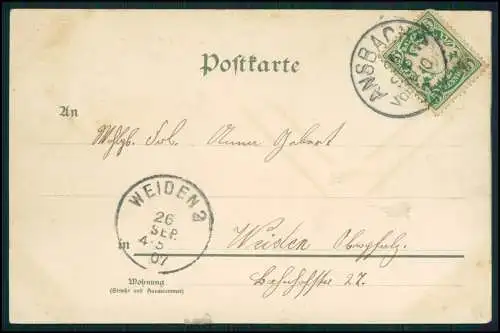 Postkarte
ANSBACH
An
Wohlgb. Frl. Anna Gebert
WEIDEN 2
26
SEP.
4-5
07
in Weiden Oberpfalz.
Wohnung
(Straße und Hausnummer)
Bahnhofstr 27.